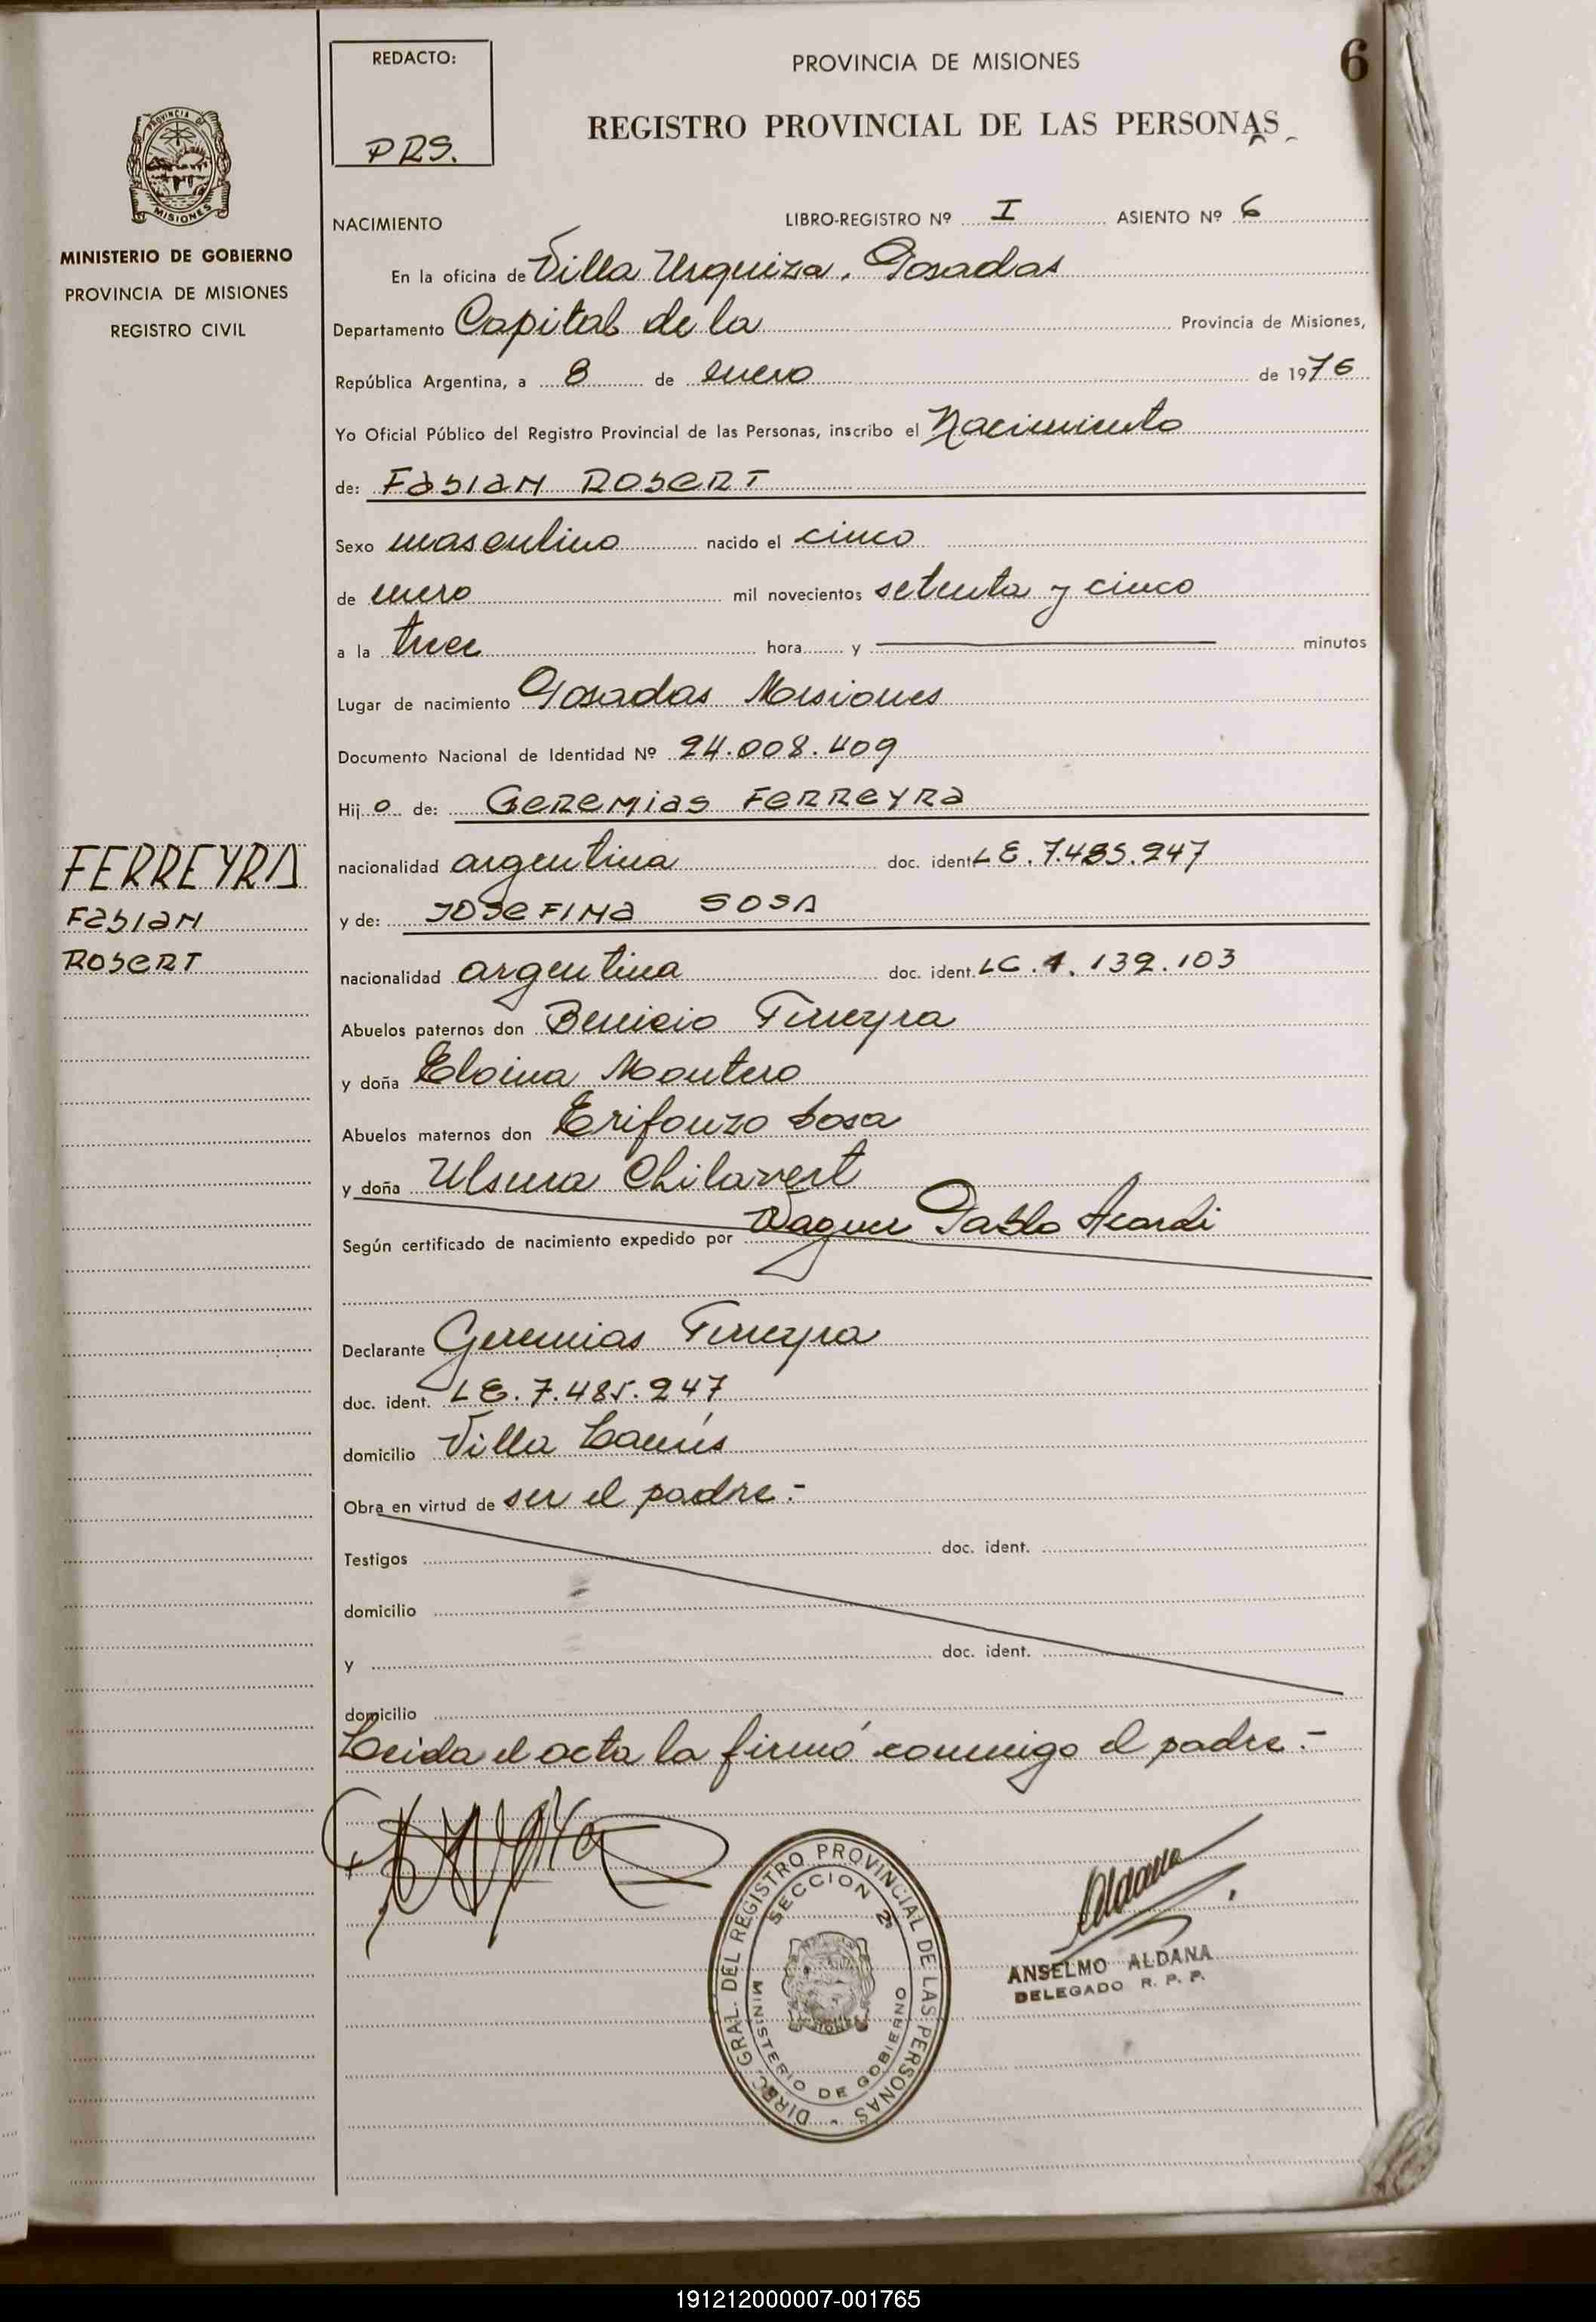 REDACTO:
PRS.
PROVINCIA DE MISIONES
6
REGISTRO PROVINCIAL DE LAS PERSONAS
PROVINCIA DE
MISIONES
MINISTERIO DE GOBIERNO
PROVINCIA DE MISIONES
REGISTRO CIVIL
NACIMIENTO LIBRO-REGISTRO Nº I ASIENTO Nº 6
En la oficina de Villa Urquiza. Posadas
Departamento Capital de la Provincia de Misiones,
República Argentina, a 8 de enero de 1976
Yo Oficial Público del Registro Provincial de las Personas, inscribo el Nacimiento
de: FABIAN ROBERT
Sexo masculino nacido el cinco
de enero mil novecientos setenta y cinco
a la trece hora y minutos
Lugar de nacimiento Posadas Misiones
Documento Nacional de Identidad Nº 24.008.409
Hijo de: GEREMIAS FERREYRA
nacionalidad argentina doc. ident LE. 7.485.247
y de: JOSEFINA SOSA
nacionalidad argentina doc. ident. LC. 4.139.103
FERREYRA
FABIAN
ROBERT
Abuelos paternos don Benicio Ferreyra
y doña Eloina Montero
Abuelos maternos don Erifonzo Sosa
y doña Chilavert
Según certificado de nacimiento expedido por Wagner Pablo
Declarante Geremias Ferreyra
doc. ident. LE. 7.485.247
domicilio Villa Lanús
Obra en virtud de ser el padre.-
Testigos doc. ident.
domicilio
y doc. ident.
domicilio
Leida el acta la firmó conmigo el padre.-
DIREC. GRAL. DEL REGISTRO PROVINCIAL DE LAS PERSONAS
SECCION 2ª
MINISTERIO DE GOBIERNO
Aldana
ANSELMO ALDANA
DELEGADO R. P. P.
191212000007-001765